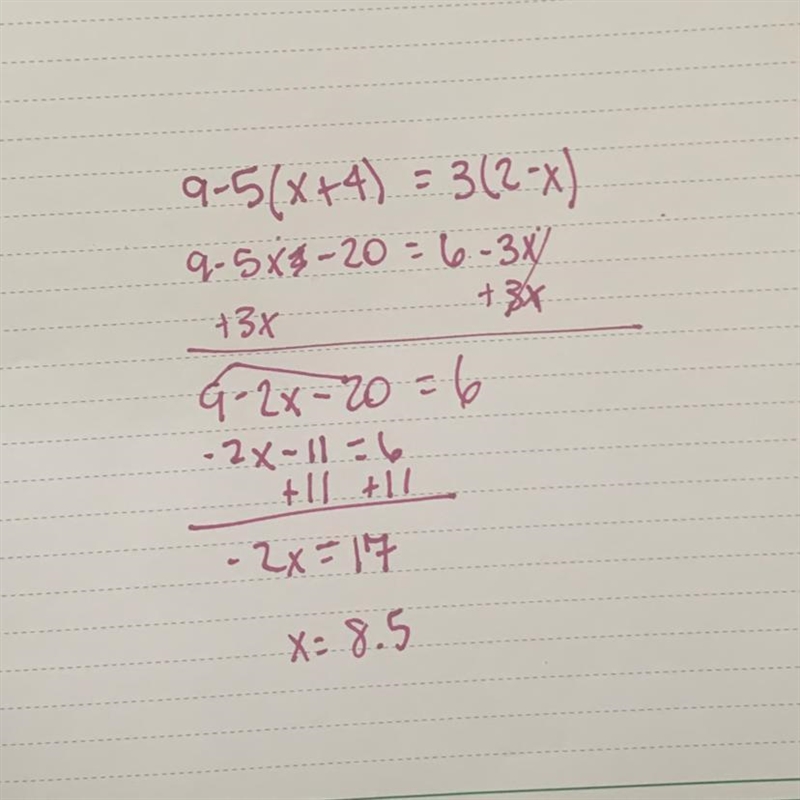 9-5(x+4) = 3(2-x)
9-5x-20 = 6-3x
+3x +3x
9-2x-20 = 6
-2x-11 = 6
+11 +11
-2x = 17
x = 8.5